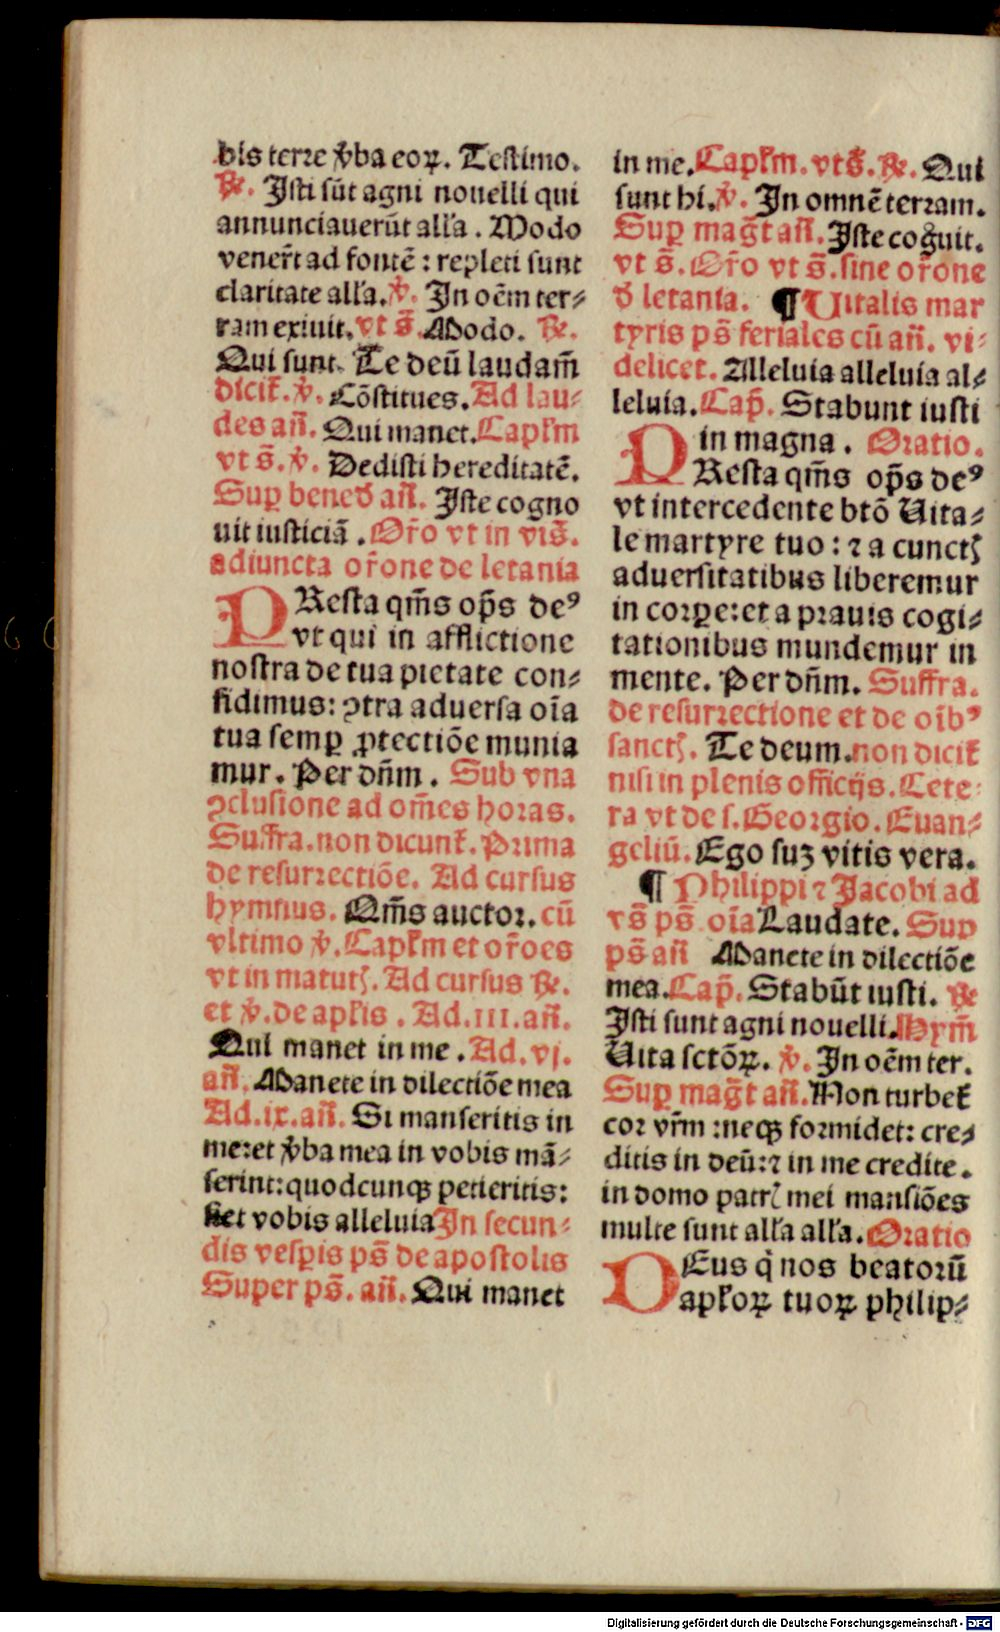 bis terre v̾ba eoꝝ. Testimo.
℟. Jsti sūt agni nouelli qui
annunciauerūt all'a. Modo
vener̄t ad fontē: repleti sunt
claritate all'a. ℣. Jn oēm ter⸗
ram exiuit. vt s̄. Modo. ℟.
Qui sunt. Te deū laudam̄
dicit̄. ℣. Cōstitues. Ad lau⸗
des an̄. Qui manet. Capl'm
vt s̄. ℣. Dedisti hereditatē.
Suꝑ bened̄ an̄. Jste cogno
uit iusticiā. Or̄o vt in vis̄.
adiuncta or̄one de letania
PResta qm̄s op̄s deꝰ
vt qui in afflictione
nostra de tua pietate con⸗
fidimus: ꝯtra aduersa oīa
tua semꝑ ꝓtectiōe munia
mur. Per dn̄m. Sub vna
ꝯclusione ad om̄es horas.
Suffra. non dicunt̄. Prima
de resurrectiōe. Ad cursus
hymnus. Om̄s auctor. cū
vltimo ℣. Capl'm et or̄oes
vt in matutꝭ. Ad cursus ℟.
et ℣. de apl'is. Ad .iii. an̄.
Qui manet in me. Ad .vj.
an̄. Manete in dilectiōe mea
Ad .ix. an̄. Si manseritis in
me: et v̾ba mea in vobis mā⸗
serint: quodcunqꝫ petieritis:
fiet vobis alleluia Jn secun⸗
dis vesꝑis ps̄ de apostolis
Super ps̄. an̄. Qui manet
in me. Capl'm. vt s̄. ℟. Qui
sunt hi. ℣. Jn omnē terram.
Suꝑ maḡt an̄. Jste cog̾uit.
vt s̄. Or̄o vt s̄. sine or̄one
d̄ letania. ¶ Uitalis mar
tyris ps̄ feriales cū an̄. vi⸗
delicet. Alleluia alleluia al⸗
leluia. Cap̄. Stabunt iusti
in magna. Oratio.
PResta qm̄s op̄s deꝰ
vt intercedente btō Uita⸗
le martyre tuo: ⁊ a cunctꝭ
aduersitatibus liberemur
in corpe: et a prauis cogi⸗
tationibus mundemur in
mente. Per dn̄m. Suffra.
de resurrectione et de oībꝰ
sanctꝭ. Te deum. non dicit̄
nisi in plenis officijs. Cete⸗
ra vt de s. Georgio. Euan⸗
geliū. Ego suꝫ vitis vera.
¶ Philippi ⁊ Jacobi ad
vs̄ ps̄ oīa Laudate. Suꝑ
ps̄ an̄ Manete in dilectiōe
mea. Cap̄. Stabūt iusti. ℟
Jsti sunt agni nouelli. Hym̄
Uita sctōꝝ. ℣. Jn oēm ter.
Suꝑ maḡt an̄. Non turbet̄
cor vr̄m: neqꝫ formidet: cre⸗
ditis in deū: ⁊ in me credite.
in domo patrꝭ mei mansiōes
multe sunt all'a all'a. Oratio
DEus q̇ nos beatorū
apl'oꝝ tuoꝝ philip⸗
Digitalisierung gefördert durch die Deutsche Forschungsgemeinschaft - DFG